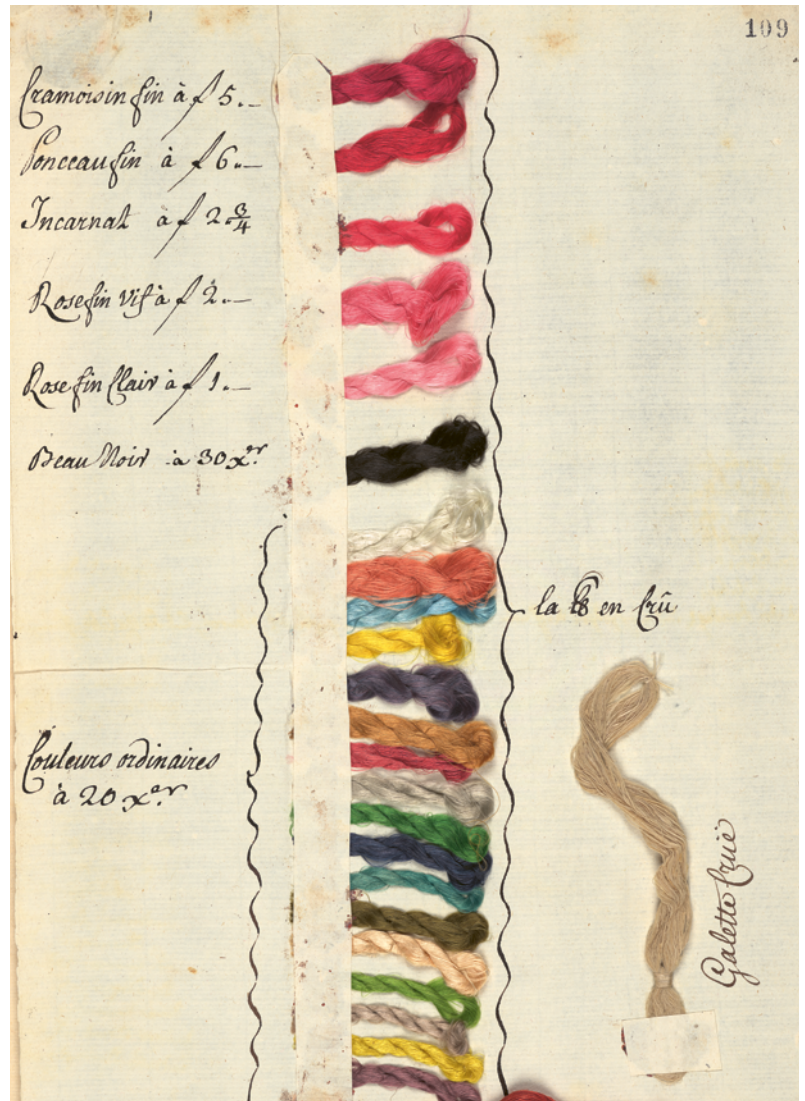 109
Cramoisin fin à f 5.—
Ponceau fin à f 6.—
Incarnat à f 2.3/4
Rose fin vif à f 2.—
Rose fin Clair à f 1.—
Beau Noir à 30 xer.
la ℔ en Crû
Couleurs ordinaires
à 20 xer.
Galette Cruë